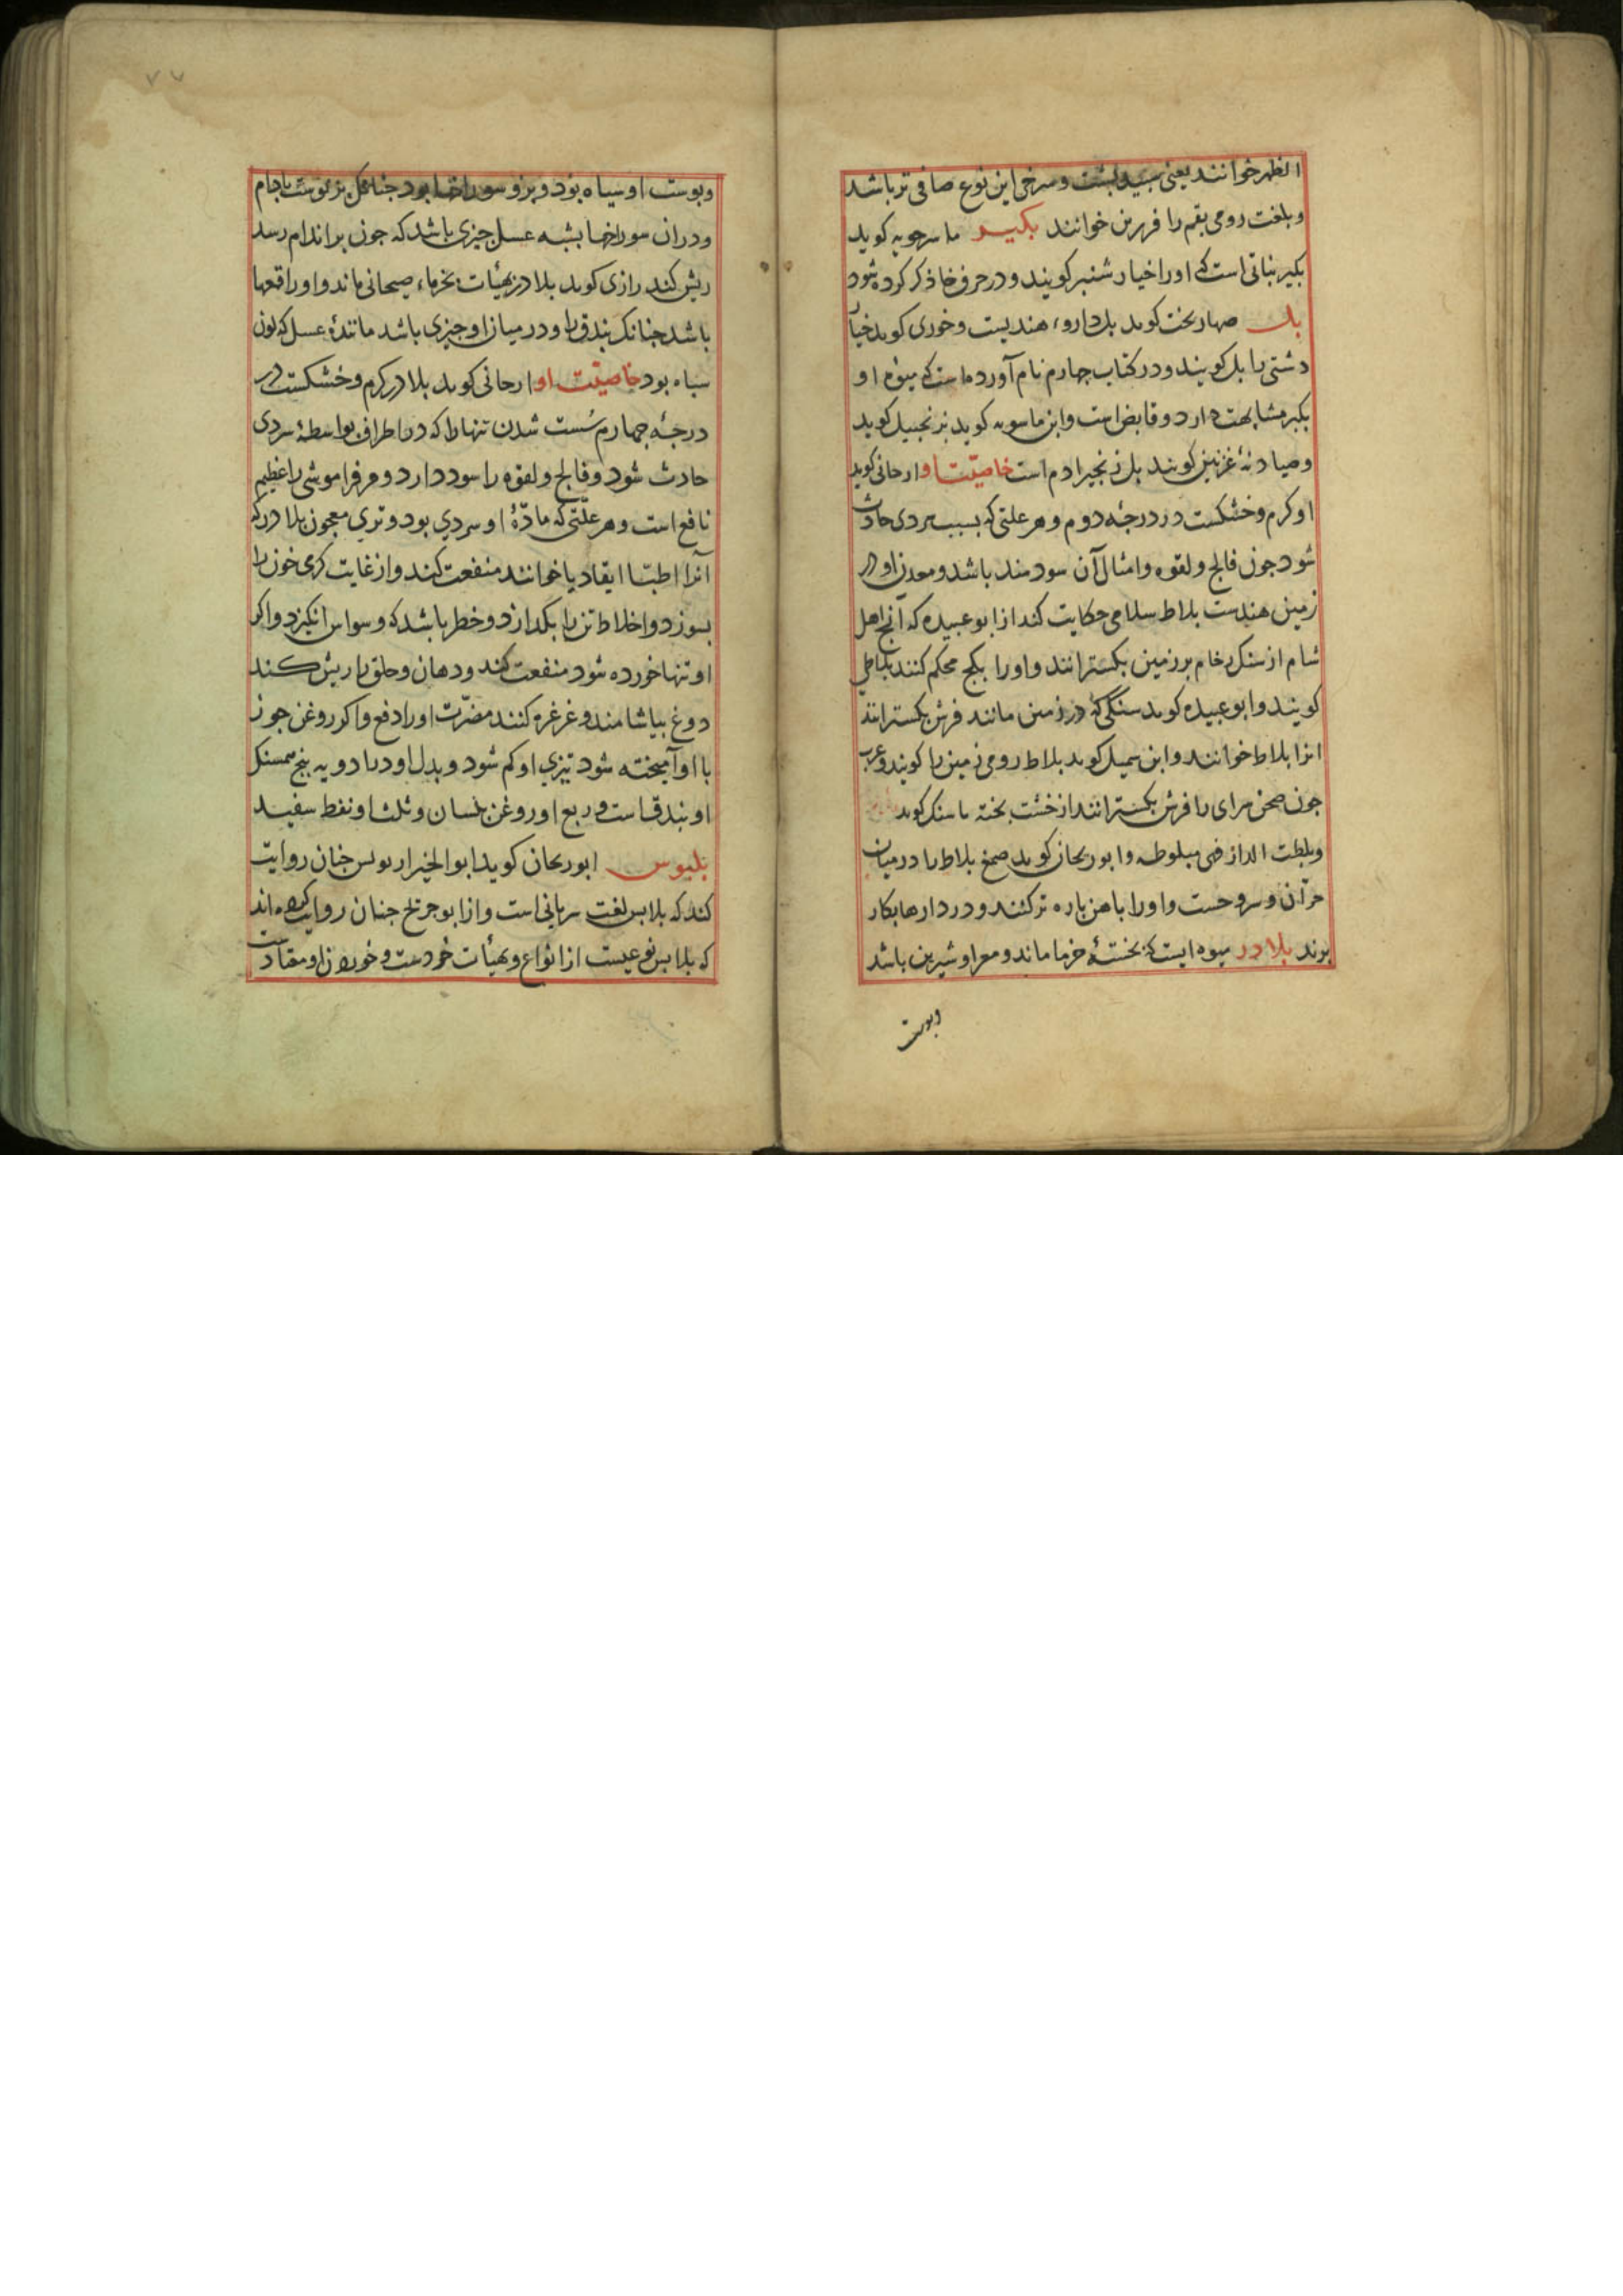 الظهر خوانند یعنی سپید پشت و سرخی این نوع صافی تر باشد
و بلغت رومی بقم را فرفرین خوانند بکیر ماسرجویه کوید
بکیر نباتی است که اورا خیار شنبر کویند و در حرف خا ذکر کرده شود
بل صهاربخت کوید بل دارو، هندیست و خوزی کوید خیار
دشتی را بل کویند و در کتاب چهارم نام آورده است که میوه او
بکبر مشابهت دارد و قابض است و ابن ماسویه کوید بزنجبیل کوید
و صیادنهٔ غزنین کویند بل زنجیرادم است خاصیت او ارجانی کوید
او کرم و خشکست در درجهٔ دوم و هر علتی که بسبب سردی حادث
شود جون فالج و لقوه و امثال آن سودمند باشد و معدن او در
زمین هندست بلاط سلامی حکایت کند از ابو عبیده که آنج اهل
شام از سنک رخام بر زمین بکسترانند و اورا بکج محکم کنند بلاط
کویند و ابو عبیده کوید سنکی که در زمین مانند فرش بکسترانند
انرا بلاط خوانند و ابن سمیل کوید بلاط رومی زمین را کویند و عرب
جون صحن سرای را فرش بکسترانند از خشت بخته یا سنک کوید
و بلطت الدار فهی مبلوطه و ابوریحان کوید صمغ بلاط را در میان
حران و سروحست و اورا باهن باره تر کنند و در دارها بکار
برند بلادر میوه ایست که بخستهٔ خرما ماند و مغز او شیرین باشد
وبوست
۷۷
وبوست او سیاه بود و برو سوراخها بود جنانک بر بوست بادام
و دران سوراخها بشبه عسل جیزی باشد که جون بر اندام رسد
ریش کند رازی کوید بلادر بهیئات بخرماء صیحانی ماند و اورا قمعها
باشد جنانک بندق را و در میان او جیزی باشد مانندهٔ عسل که لون
سیاه بود خاصیت او ارجانی کوید بلادر کرم و خشکست در
درجهٔ جهارم سست شدن تنها را که در اطراف بواسطهٔ سردی
حادث شود و فالج و لقوه را سود دارد و مر فراموشی را عظیم
نافع است و هر علتی که مادّهٔ او سردی بود و تری معجون بلادر که
آنرا اطبّا ایقاد یا خوانند منفعت کند و از غایت کرمی خون را
بسوزد و اخلاط تن را بکدازد و خطر باشد که وسواس انکیزد و اکر
او تنها خورده شود منفعت کند و دهان و حلق را ریش کند
دوغ بیاشامند و غرغره کنند مضرّت اورا دفع و اکر روغن جوز
با او آمیخته شود تیزی او کم شود و بدل او در ادویه بنج همسنک
او بندقست و ربع او روغن بلسان و ثلث او نفط سفید
بلبوس ابوریحان کوید ابو الخیر از بولس جنان روایت
کند که بلابس لغت سریانی است و از ابو جریج جنان روایت کرده اند
که بلابس نوعیست از انواع و بهیأت خردست و خوردن او معتادست